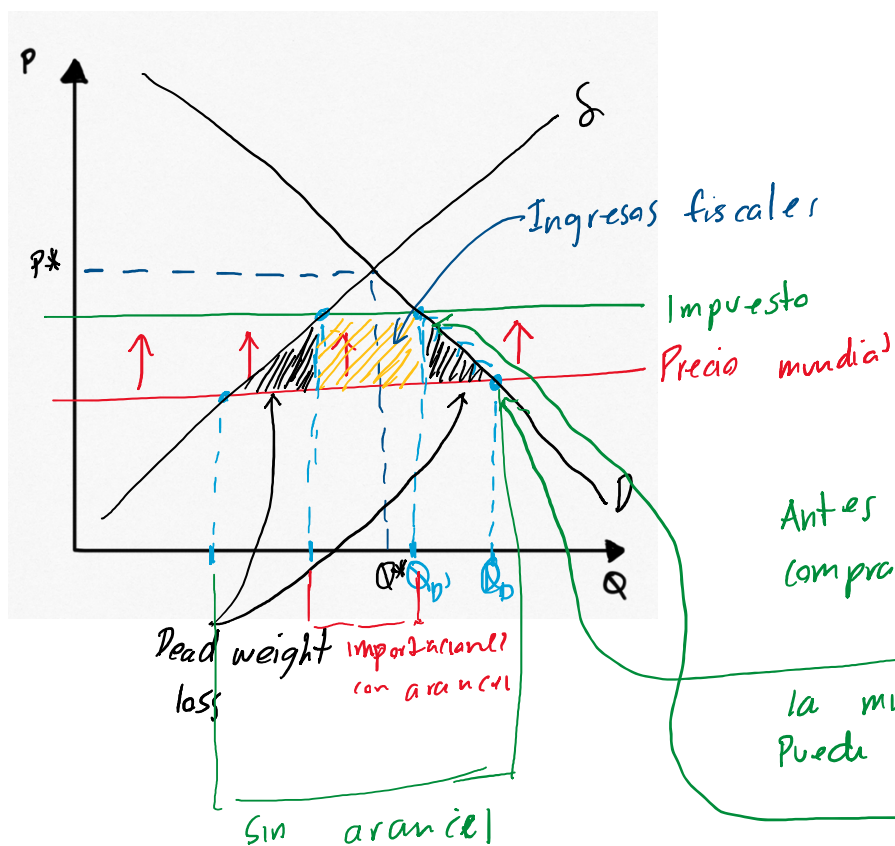 P
S
Ingresos fiscales
P*
Impuesto
Precio mundial
D
Antes
compra
Q* QD' QD
Q
Dead weight
loss
importaciones
con arancel
la mu
Puede
Sin arancel